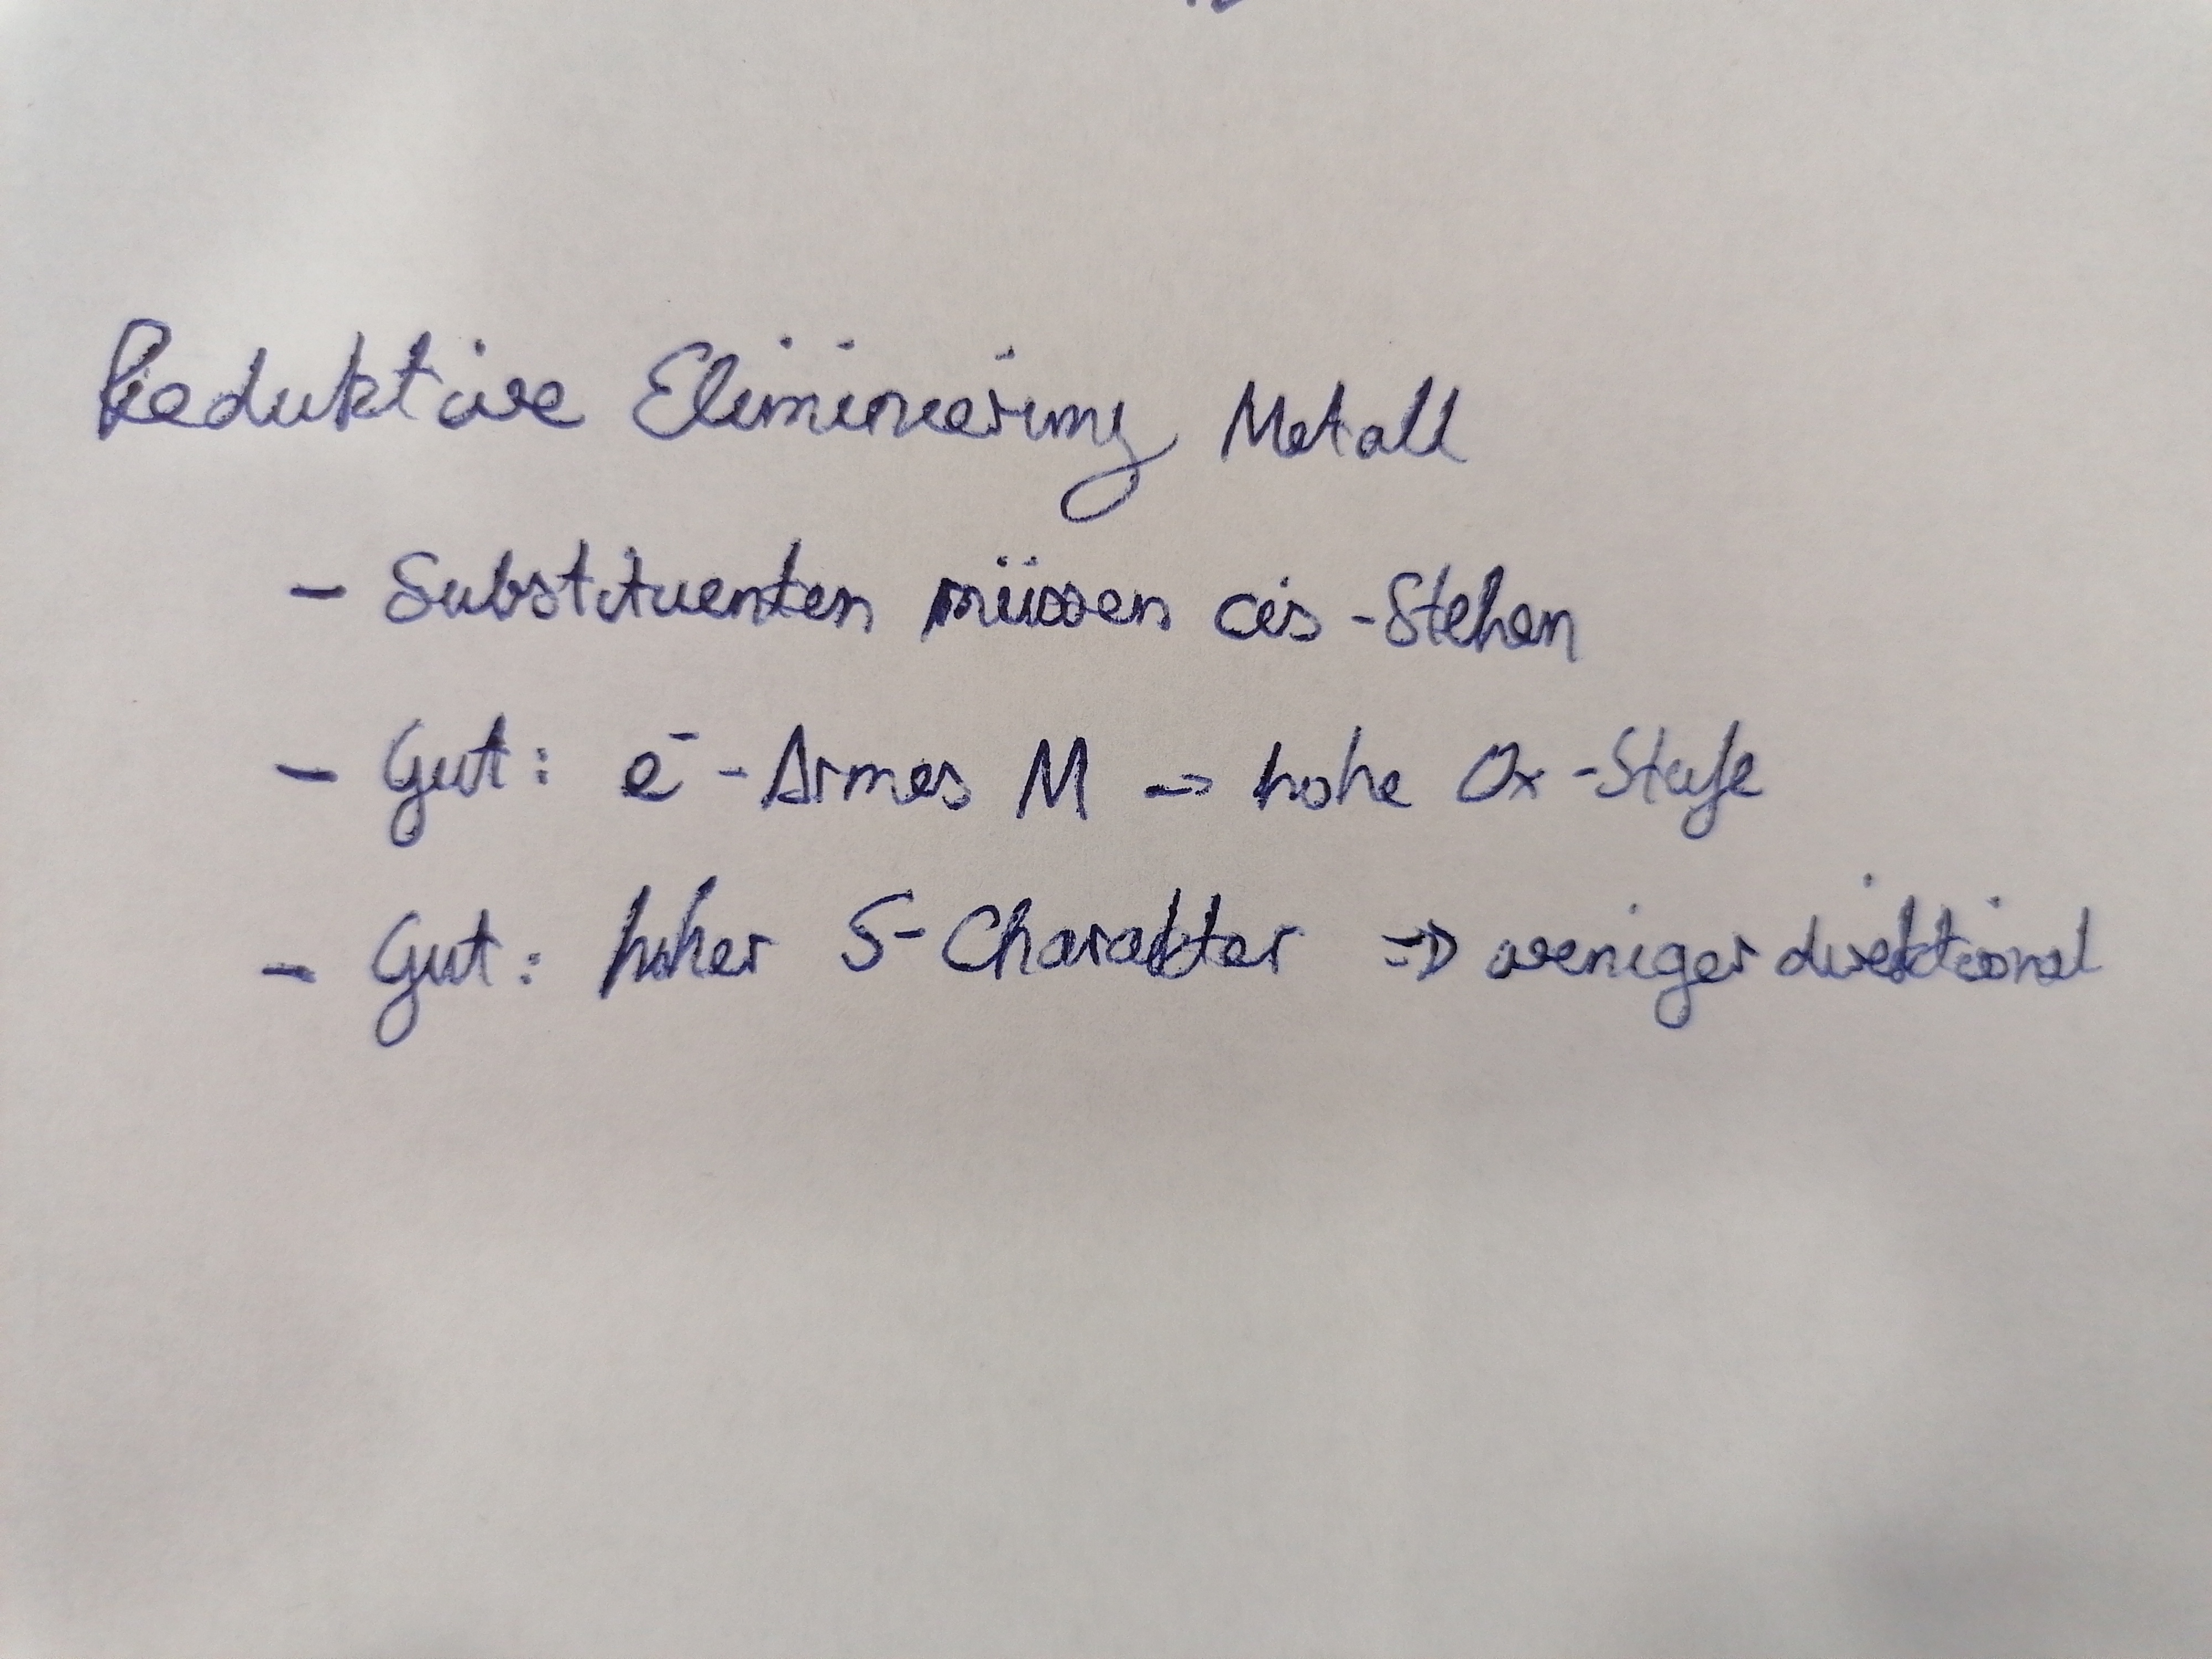 Reduktive Eliminierung Metall
- Substituenten müssen cis-Stehen
- Gut: e⁻-Armes M -> hohe Ox-Stufe
- Gut: hoher S-Charakter => weniger direktional